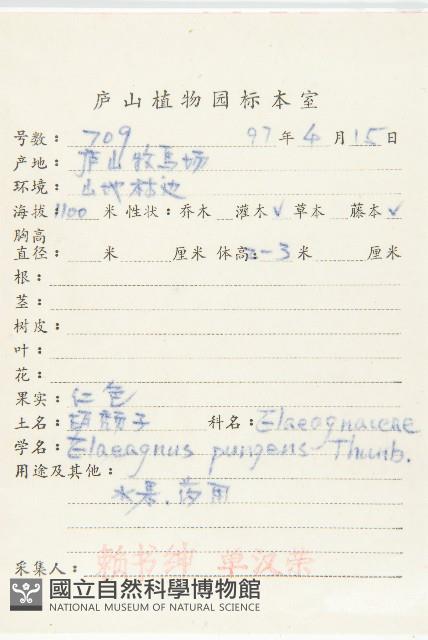 庐山植物园标本室
号数: 709 97年4月15日
产地: 庐山牧马场
环境: 山地林边
海拔: 1100 米 性状: 乔木 灌木✓ 草本 藤本✓
胸高
直径: 米 厘米 体高: 2-3 米 厘米
根:
茎:
树皮:
叶:
花:
果实: 仁色
土名: 胡颓子 科名: Elaeagnaceae
学名: Elaeagnus pungens Thunb.
用途及其他:
水果、药用
采集人: 赖书绅 单汉荣
國立自然科學博物館
NATIONAL MUSEUM OF NATURAL SCIENCE